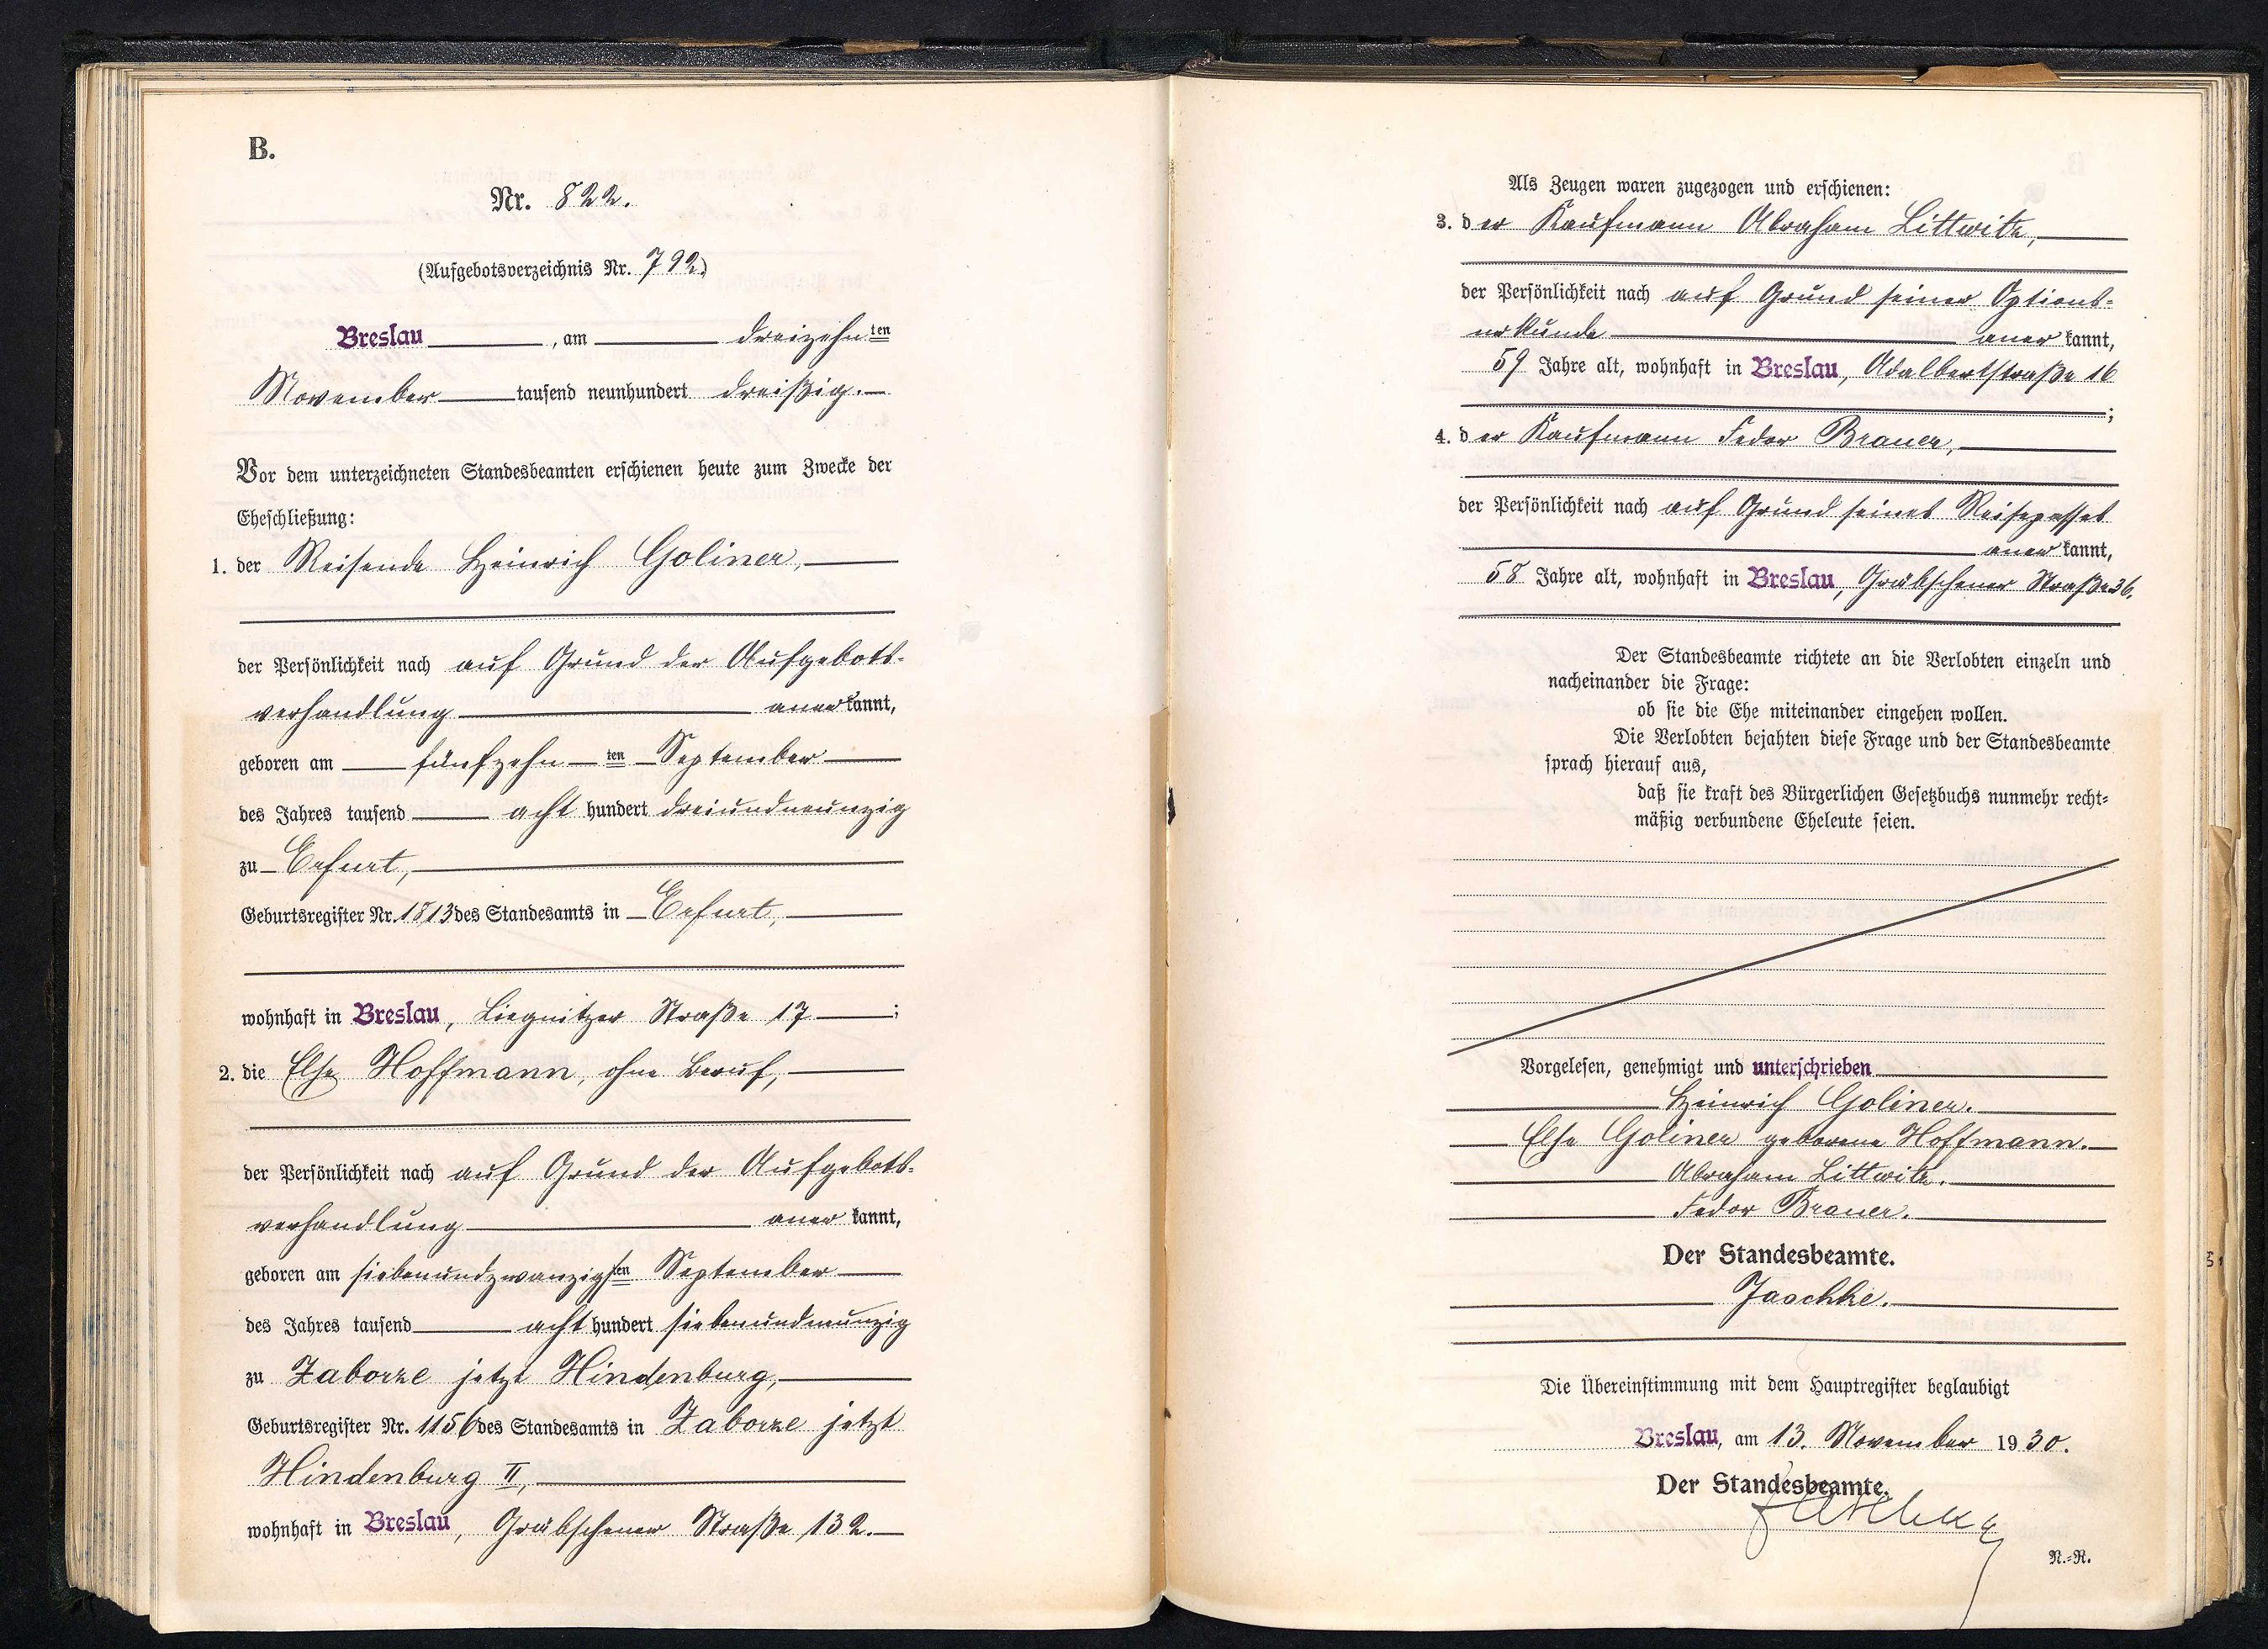 B.
Nr. 822.
(Aufgebotsverzeichnis Nr. 792.)
Breslau, am dreizehnten
November tausend neunhundert dreißig.
Vor dem unterzeichneten Standesbeamten erschienen heute zum Zwecke der
Eheschließung:
1. der Reisende Heinrich Goliner,
der Persönlichkeit nach auf Grund der Aufgebots-
verhandlung anerkannt,
geboren am fünfzehnten September
des Jahres tausend acht hundert dreiundneunzig
zu Erfurt,
Geburtsregister Nr. 1813 des Standesamts in Erfurt,
wohnhaft in Breslau, Liegnitzer Straße 17;
2. die Else Hoffmann, ohne Beruf,
der Persönlichkeit nach auf Grund der Aufgebots-
verhandlung anerkannt,
geboren am siebenundzwanzigsten September
des Jahres tausend acht hundert siebenundneunzig
zu Zaborze jetzt Hindenburg,
Geburtsregister Nr. 1156 des Standesamts in Zaborze jetzt
Hindenburg II,
wohnhaft in Breslau, Gräbschener Straße 132.
Als Zeugen waren zugezogen und erschienen:
3. der Kaufmann Abraham Littwitz,
der Persönlichkeit nach auf Grund seiner Options-
urkunde anerkannt,
59 Jahre alt, wohnhaft in Breslau, Adalbertstraße 16
;
4. der Kaufmann Fedor Brauer,
der Persönlichkeit nach auf Grund seines Reisepasses
anerkannt,
58 Jahre alt, wohnhaft in Breslau, Gräbschener Straße 36.
Der Standesbeamte richtete an die Verlobten einzeln und
nacheinander die Frage:
ob sie die Ehe miteinander eingehen wollen.
Die Verlobten bejahten diese Frage und der Standesbeamte
sprach hierauf aus,
daß sie kraft des Bürgerlichen Gesetzbuchs nunmehr recht-
mäßig verbundene Eheleute seien.
Vorgelesen, genehmigt und unterschrieben
Heinrich Goliner.
Else Goliner geborene Hoffmann.
Abraham Littwitz.
Fedor Brauer.
Der Standesbeamte.
Jaschke.
Die Übereinstimmung mit dem Hauptregister beglaubigt
Breslau, am 13. November 1930.
Der Standesbeamte.
Jaschke
N.-R.